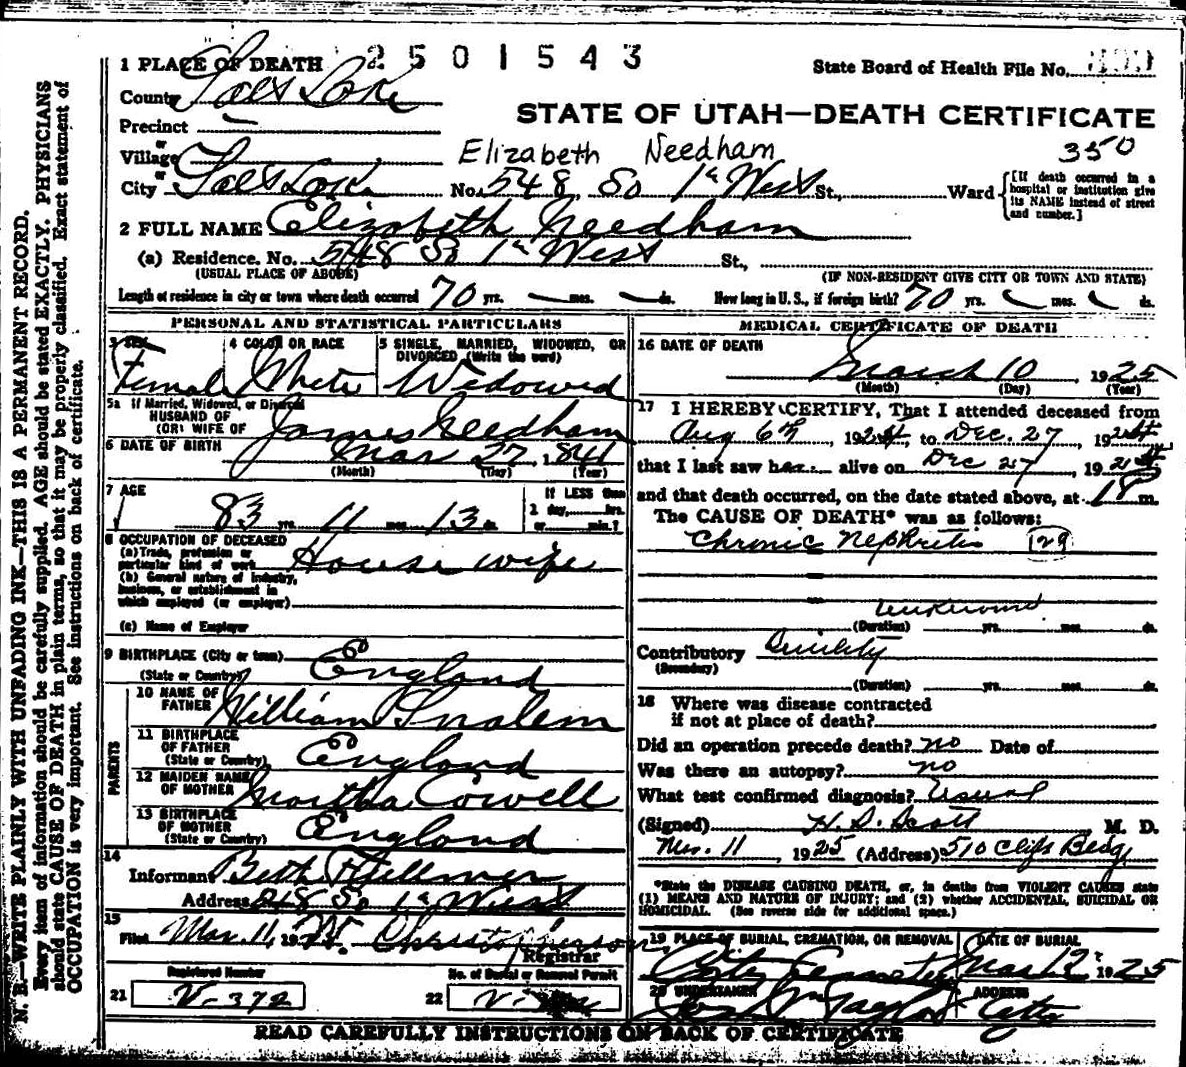 1 PLACE OF DEATH 2501543
State Board of Health File No.
County Salt Lake
STATE OF UTAH—DEATH CERTIFICATE
Precinct —
or
Village
Elizabeth Needham 350
or
City Salt Lake No. 548 So 1st West St., Ward
[If death occurred in a hospital or institution give its NAME instead of street and number.]
2 FULL NAME Elizabeth Needham
(a) Residence. No. 548 So 1st West St.,
(USUAL PLACE OF ABODE) (IF NON-RESIDENT GIVE CITY OR TOWN AND STATE)
Length of residence in city or town where death occurred 70 yrs. — mos. — ds. How long in U. S., if foreign birth? 70 yrs. mos. ds.
PERSONAL AND STATISTICAL PARTICULARS
3 SEX 4 COLOR OR RACE 5 SINGLE, MARRIED, WIDOWED, OR DIVORCED (Write the word)
Female White Widowed
5a If Married, Widowed, or Divorced
HUSBAND OF
(OR) WIFE OF James Needham
6 DATE OF BIRTH Mar 27, 1841
(Month) (Day) (Year)
7 AGE
83 yrs. 11 mos. 13 ds.
If LESS than
1 day, hrs.
or min.?
8 OCCUPATION OF DECEASED
(a) Trade, profession or
particular kind of work House wife
(b) General nature of industry,
business, or establishment in
which employed (or employer)
(c) Name of Employer
9 BIRTHPLACE (City or town)
(State or Country) England
PARENTS
10 NAME OF
FATHER William
11 BIRTHPLACE
OF FATHER
(State or Country) England
12 MAIDEN NAME
OF MOTHER Martha Cowell
13 BIRTHPLACE
OF MOTHER
(State or Country) England
14
Informant Beth
Address So 1st West
15
Filed Mar. 11, 19
Registrar
Registered Number No. of Burial or Removal Permit
21 V-372 22
MEDICAL CERTIFICATE OF DEATH
16 DATE OF DEATH
March 10, 1925
(Month) (Day) (Year)
17 I HEREBY CERTIFY, That I attended deceased from
Aug 6th, 1924, to Dec. 27, 1924
that I last saw her alive on Dec 27, 192
and that death occurred, on the date stated above, at m.
The CAUSE OF DEATH* was as follows:
Chronic Nephritis 129
unknown
(Duration) yrs. mos. ds.
Contributory Senility
(Secondary)
(Duration) yrs. mos. ds.
18 Where was disease contracted
if not at place of death?
Did an operation precede death? no Date of
Was there an autopsy? no
What test confirmed diagnosis? Usual
(Signed) H. S. Scott M. D.
Mar. 11, 1925 (Address) 510 Clift Bldg
*State the DISEASE CAUSING DEATH, or, in deaths from VIOLENT CAUSES state
(1) MEANS AND NATURE OF INJURY; and (2) whether ACCIDENTAL, SUICIDAL OR
HOMICIDAL. (See reverse side for additional space.)
19 PLACE OF BURIAL, CREMATION, OR REMOVAL DATE OF BURIAL
City Cemetery Mar 12, 1925
20 UNDERTAKER ADDRESS
Taylor City
READ CAREFULLY INSTRUCTIONS ON BACK OF CERTIFICATE
N. B.—WRITE PLAINLY WITH UNFADING INK—THIS IS A PERMANENT RECORD.
Every item of information should be carefully supplied. AGE should be stated EXACTLY. PHYSICIANS
should state CAUSE OF DEATH in plain terms, so that it may be properly classified. Exact statement of
OCCUPATION is very important. See instructions on back of certificate.